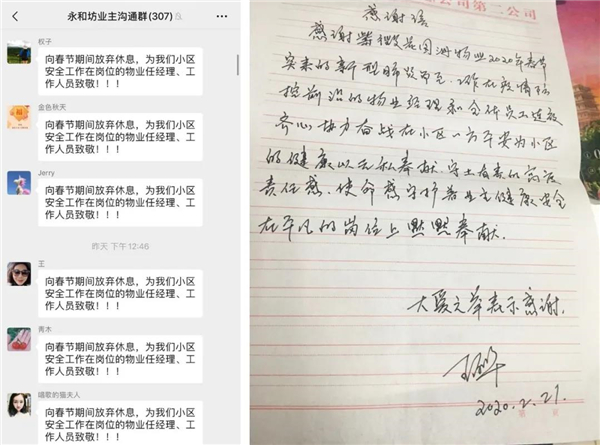 永和坊业主沟通群(307)
权子
向春节期间放弃休息，为我们小区
安全工作在岗位的物业任经理、工
作人员致敬！！！
金色秋天
向春节期间放弃休息，为我们小区
安全工作在岗位的物业任经理、工
作人员致敬！！！
Jerry
向春节期间放弃休息，为我们小区
安全工作在岗位的物业任经理、工
作人员致敬！！！
昨天 下午12:46
王
向春节期间放弃休息，为我们小区
安全工作在岗位的物业任经理、工
作人员致敬！！！
青木
向春节期间放弃休息，为我们小区
安全工作在岗位的物业任经理、工
作人员致敬！！！
唱歌的猫夫人
向春节期间放弃休息，为我们小区
安全工作在岗位的物业任经理、工
作人员致敬！！！
公司第二公司
感谢语
感谢 物业2020年春节
突来的新型肺炎 至 在疫情防
控前沿的物业经理和全体员工
齐心协力奋战在小区 为小区
的健康以无私奉献 守土有责的
责任感、使命感守护着业主健康安全
在平凡的岗位上默默奉献.
大爱 表示感谢.
2020.2.21.